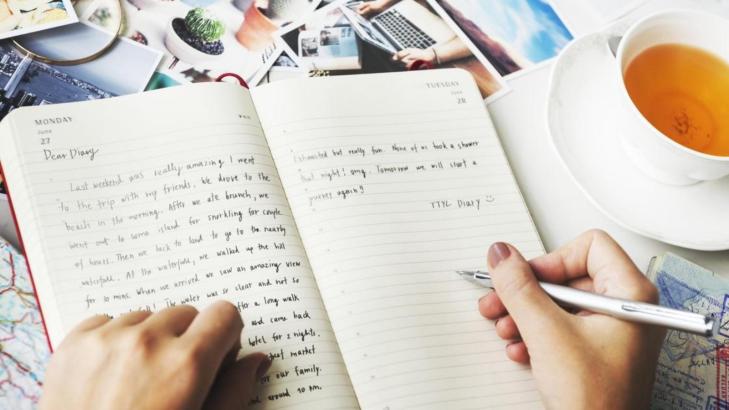 MONDAY
June
27
Dear Diary
Last weekend was really amazing I went
to the trip with my friends. We drove to the
beach in the morning. After we ate brunch, we
went out to some island for snorkling for couple
of hours. Then we back to land to go to the nearby
waterfall. At the waterfall, we walked up the hill
for 10 mins. When we arrived we saw an amazing view
The water was so clear and not so
a long walk
and came back
hotel for 2 nights.
market
for our family.
around 10 pm.
TUESDAY
June
28
Exhausted but really fun. None of us took a shower
last night! omg. Tomorrow we will start a
journey again!!
TTYL Diary